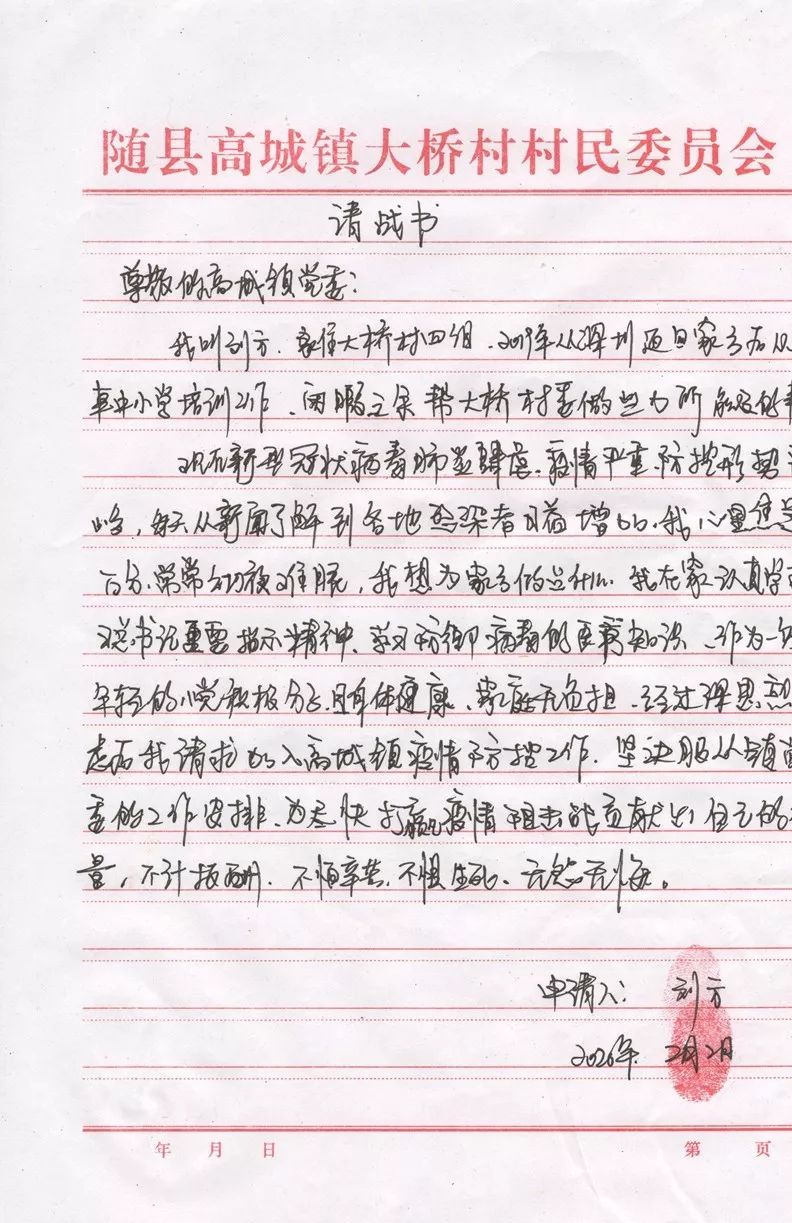 随县高城镇大桥村村民委员会
请战书
尊敬的高城镇党委：
我叫刘方、家住大桥村四组、2019年从深圳返回家乡后从
事中小学培训工作、闲暇之余帮大桥村委做些力所能及的
现在新型冠状病毒肺炎肆虐、疫情严重、防控形势
峻，每天从新闻了解到各地感染者日益增加，我心里焦急
百分、常常彻夜难眠，我想为家乡做些什么。我在家认真学
习总书记重要指示精神、学习防御病毒的医疗知识、作为一
年轻的入党积极分子、且身体健康、家庭无负担、经过深思熟
虑后我请求加入高城镇疫情防控工作、坚决服从镇党
委的工作安排、为尽快打赢疫情阻击战贡献出自己的
量，不计报酬、不怕辛苦、不惧生死、无怨无悔。
申请人：刘方
2020年2月2日
年 月 日 第 页